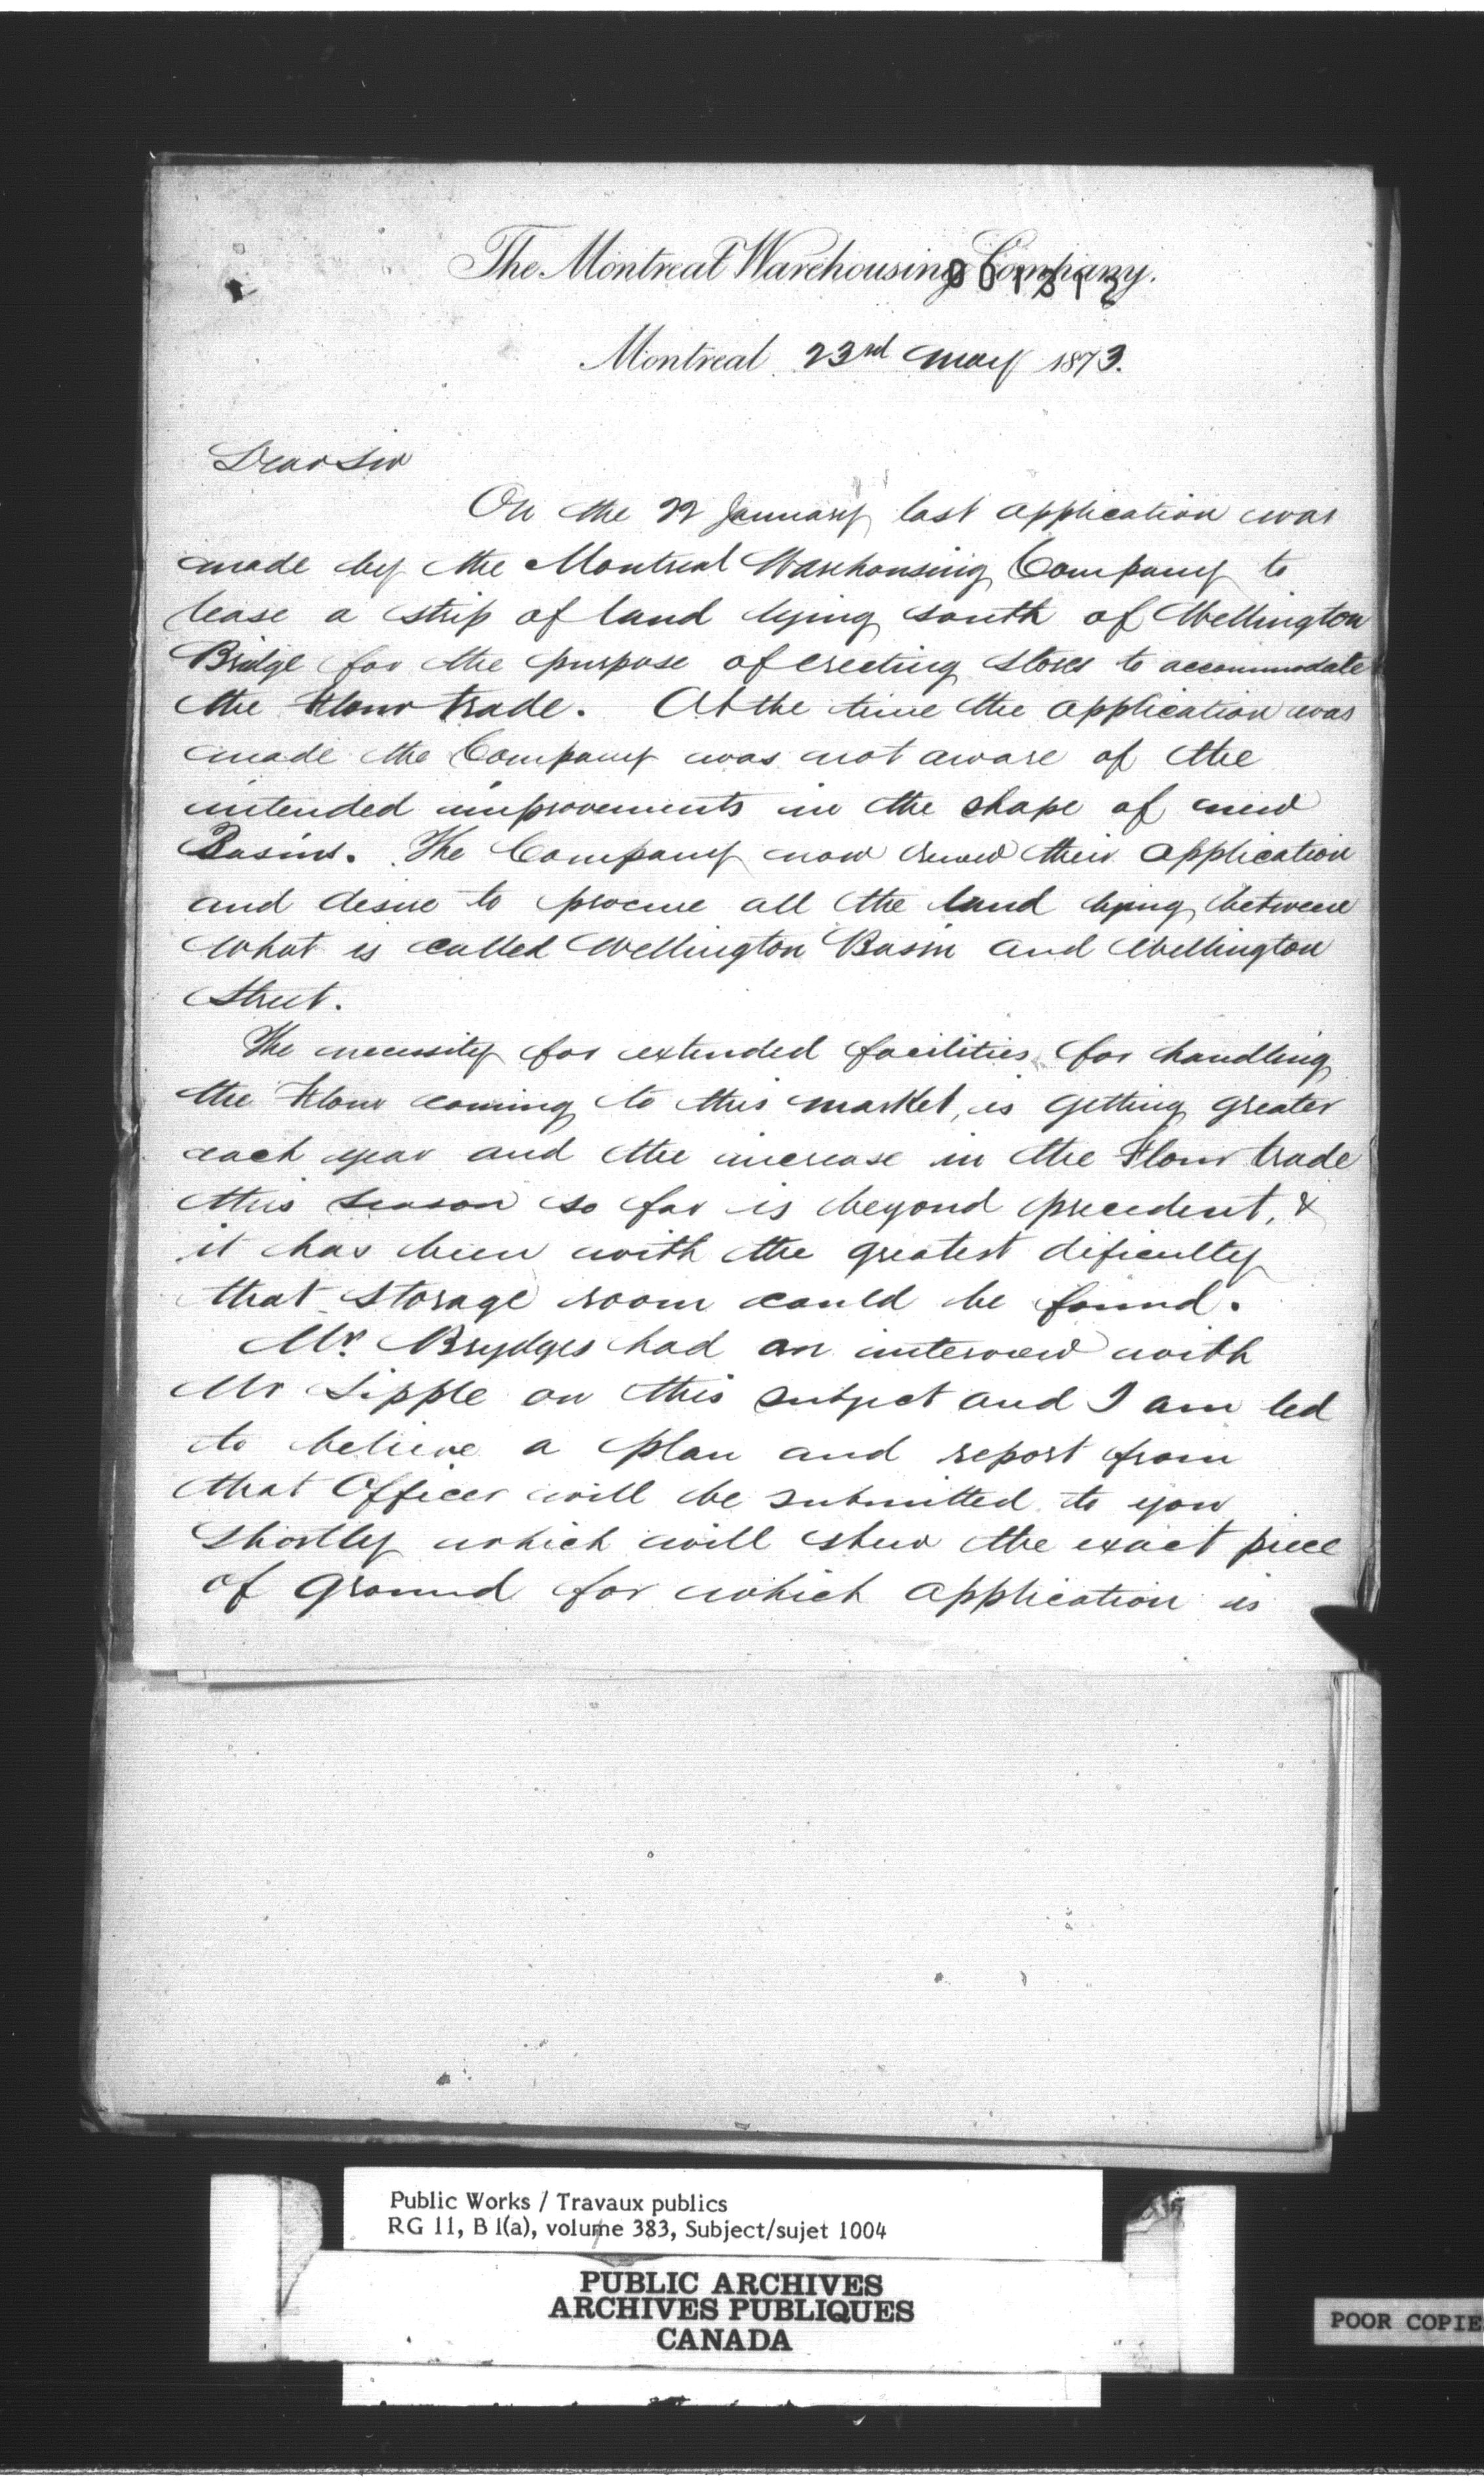 The Montreal Warehousing Company.
Montreal 23rd May 1873.
Dear Sir
On the 22 January last application was
made by the Montreal Warehousing Company to
lease a strip of land lying south of Wellington
Bridge for the purpose of erecting stores to accommodate
the Flour trade. At the time the application was
made the Company was not aware of the
intended improvements in the shape of new
Basins. The Company now renew their application
and desire to procure all the land lying between
what is called Wellington Basin and Wellington
Street.
The necessity for extended facilities for handling
the Flour coming to this market, is getting greater
each year and the increase in the Flour trade
this season so far is beyond precedent, &
it has been with the greatest dificulty
that storage room could be found.
Mr. Brydges had an interview with
Mr Sipple on this subject and I am led
to believe a plan and report from
that Officer will be submitted to you
shortly which will shew the exact piece
of ground for which application is
Public Works / Travaux publics
RG 11, B 1(a), volume 383, Subject/sujet 1004
PUBLIC ARCHIVES
ARCHIVES PUBLIQUES
CANADA
POOR COPIE